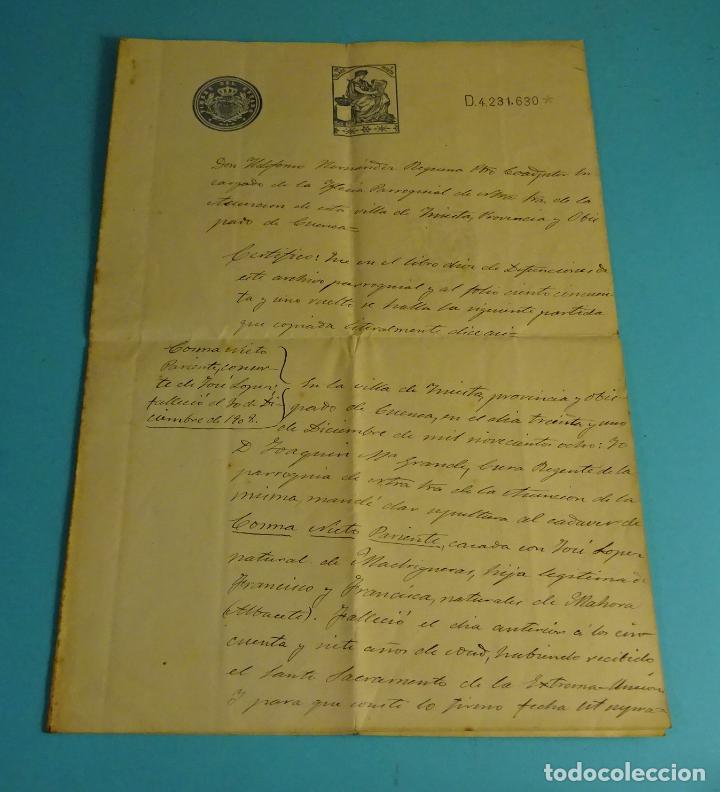 TIMBRE DEL ESTADO
D.4.231.630*
Don Ildefonso Hernández Requena Pbro Coadjutor En
cargado de la Yglesia Parroquial de Ntra Sra. de la
Asuncion de esta villa de Yniesta, Provincia y Obis
pado de Cuenca=
Certifico: Que en el libro diez de Defunciones de
este archivo parroquial y al folio ciento cincuen
ta y uno vuelto se halla la siguiente partida
que copiada literalmente dice asi=
Cosma Nieto
Pariente, consor-
te de José Lopez,
falleció el 30 de Di-
ciembre de 1908.
En la villa de Yniesta, provincia y obis
pado de Cuenca, en el dia treinta y uno
de Diciembre de mil novecientos ocho: Yo
D. Joaquin Mª Grande, Cura Regente de la
parroquia de Ntra Sra de la Asuncion de la
misma, mandé dar sepultura al cadaver de
Cosma Nieto Pariente, casada con José Lopez
natural de Madrigueras, hija legitima de
Francisco y Francisca, naturales de Mahora
(Albacete). Falleció el dia anterior á los cin
cuenta y siete años de edad, habiendo recibido
el Santo Sacramento de la Extrema-Uncion
Y para que conste lo firmo fecha ut supra=
todocoleccion